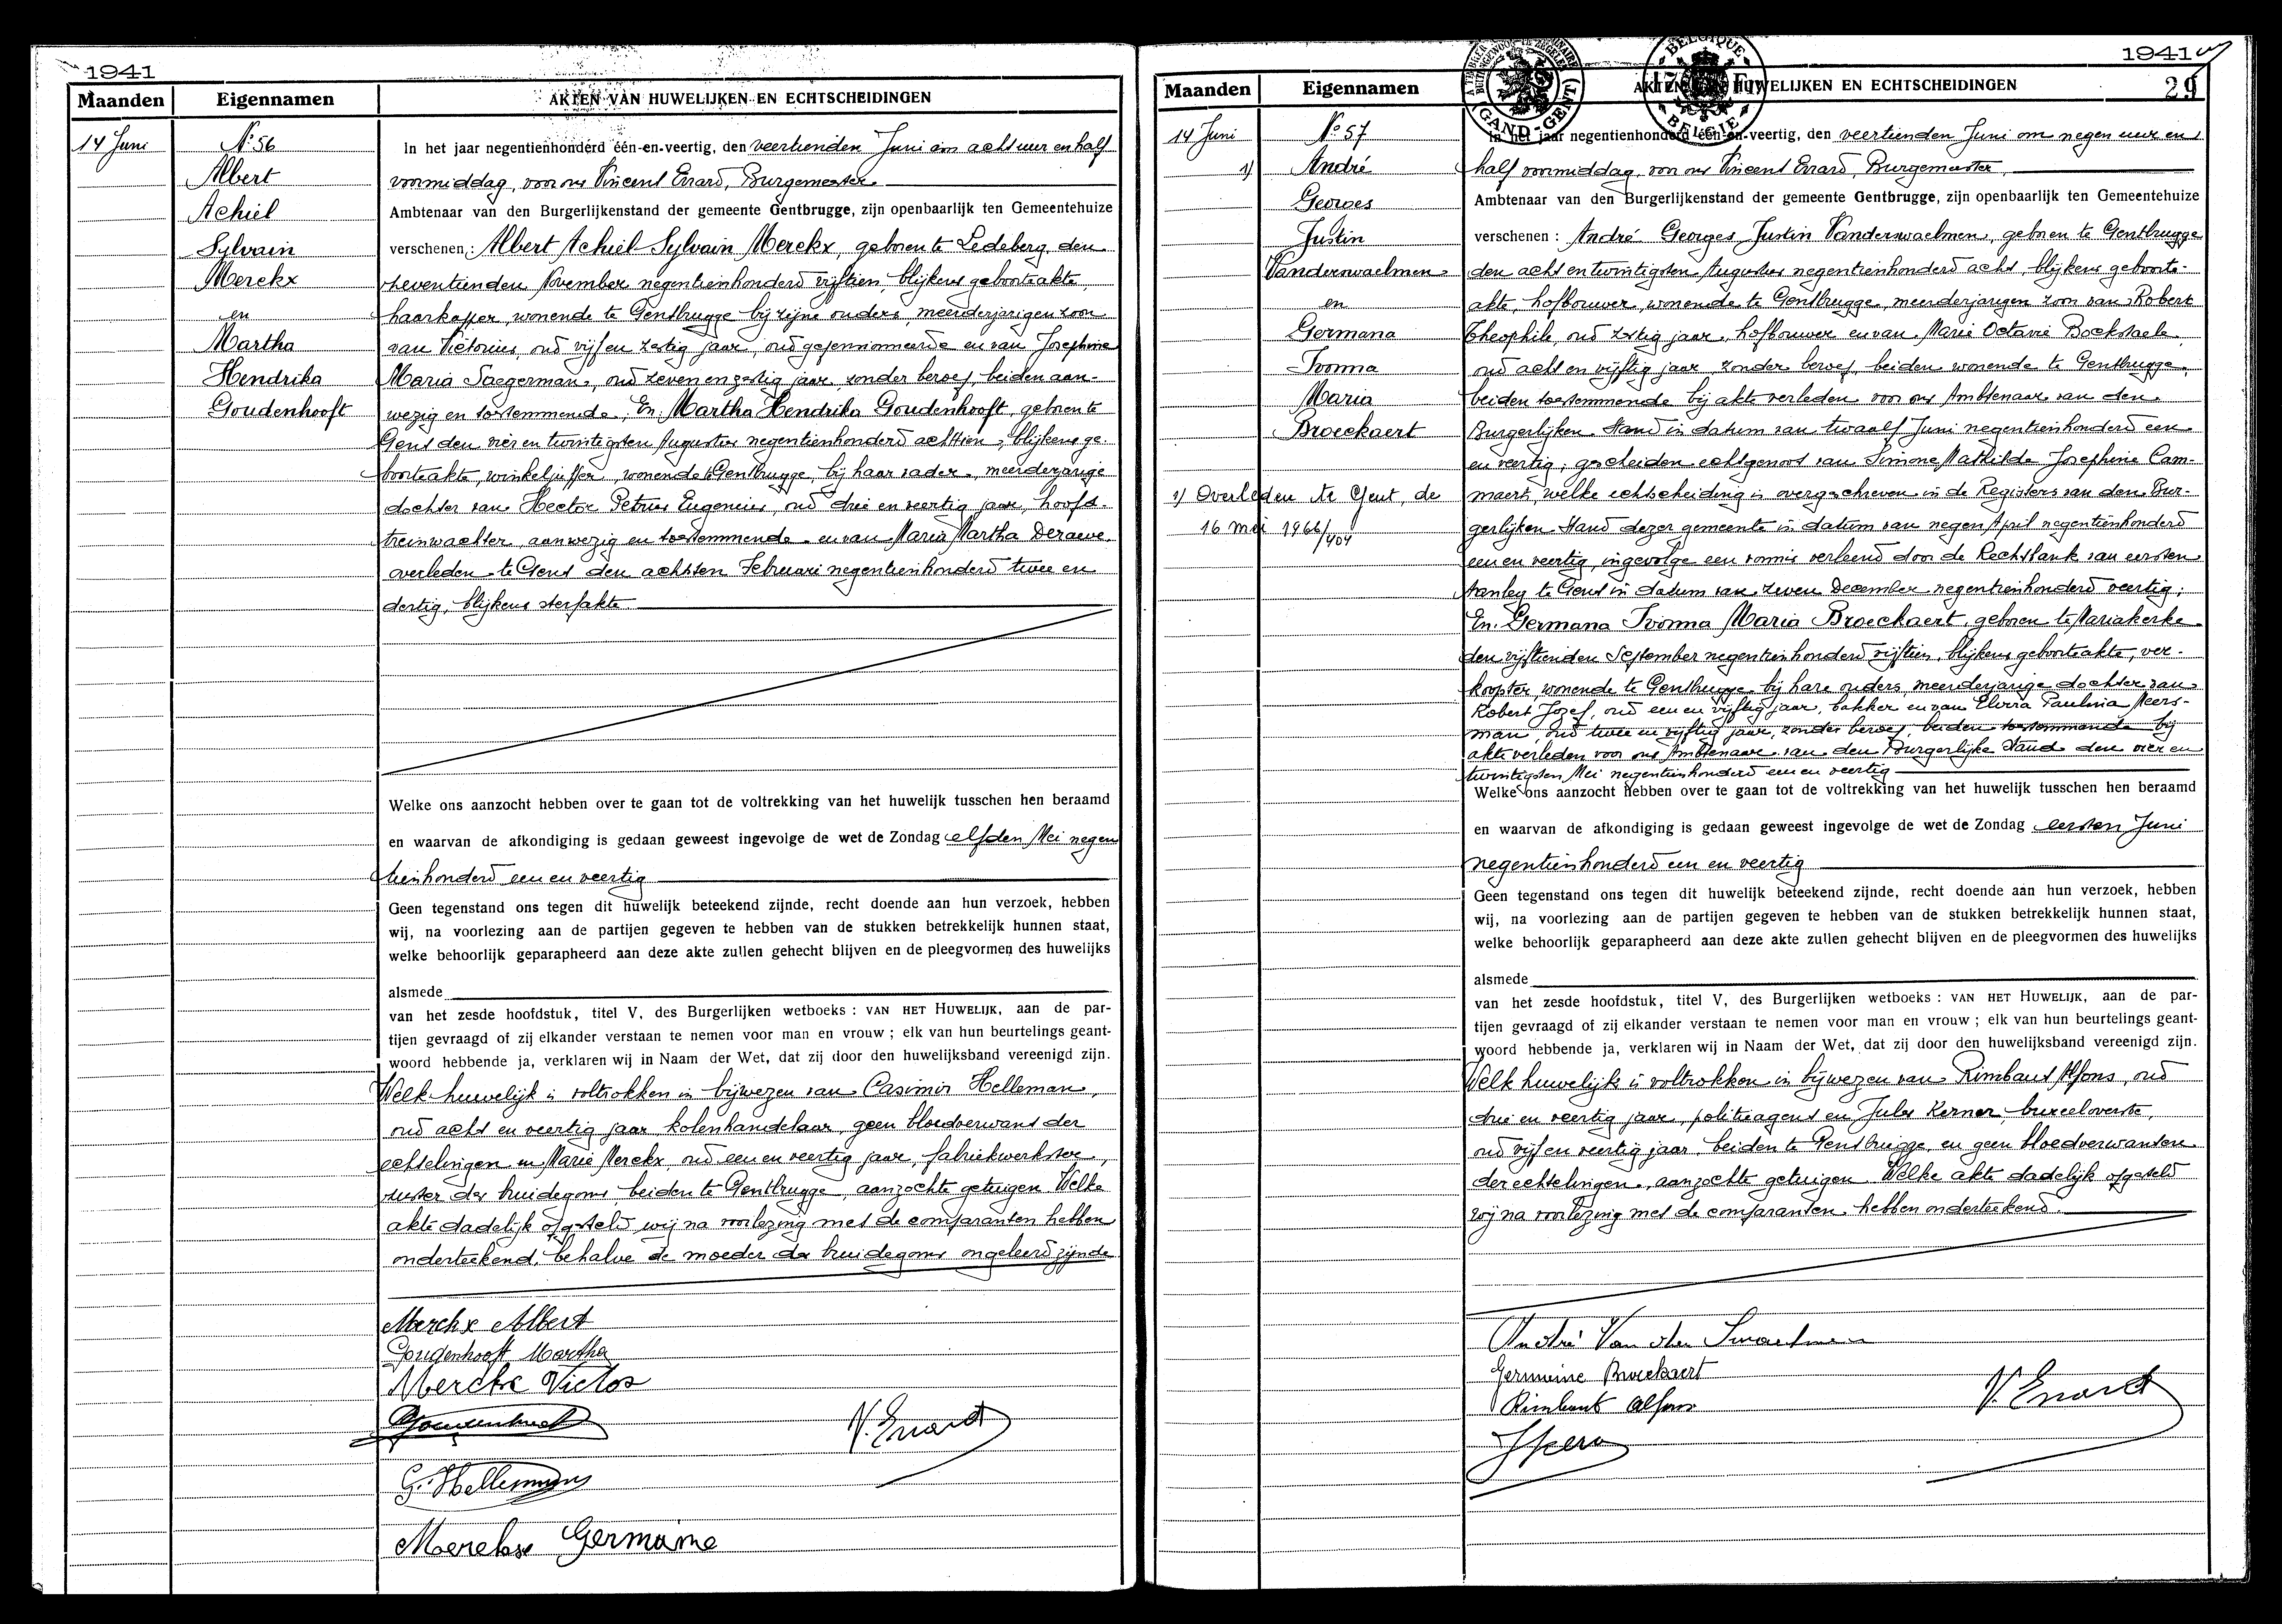 1941
Maanden Eigennamen AKTEN VAN HUWELIJKEN EN ECHTSCHEIDINGEN
14 Juni
N° 56
Albert
Achiel
Sylvain
Merckx
en
Martha
Hendrika
Goudenhooft
In het jaar negentienhonderd één-en-veertig, den veertienden Juni om acht uur en half
voormiddag, voor ons Vincent Errard, Burgemeester
Ambtenaar van den Burgerlijkenstand der gemeente Gentbrugge, zijn openbaarlijk ten Gemeentehuize
verschenen: Albert Achiel Sylvain Merckx, geboren te Ledeberg, den
zeventienden November negentienhonderd vijftien, blijkens geboorteakte,
haarkapper, wonende te Gentbrugge bij zijne ouders, meerderjarigen zoon
van Victorius, oud vijf en zestig jaar, oud gepensionneerde en van Josephine
Maria Saegerman, oud zeven en zestig jaar, zonder beroep, beiden aan-
wezig en toestemmende; En: Martha Hendrika Goudenhooft, geboren te
Gent den vier en twintigsten Augustus negentienhonderd achttien, blijkens ge-
boorteakte, winkeljuffer, wonende te Gentbrugge, bij haar vader, meerderjarige
dochter van Hector Petrus Eugenius, oud drie en veertig jaar, hoofd-
treinwachter, aanwezig en toestemmende en van Maria Martha Deraeve
overleden te Gent den achtsten Februari negentienhonderd twee en
dertig, blijkens sterfakte
Welke ons aanzocht hebben over te gaan tot de voltrekking van het huwelijk tusschen hen beraamd
en waarvan de afkondiging is gedaan geweest ingevolge de wet de Zondag elfden Mei negen
tienhonderd een en veertig
Geen tegenstand ons tegen dit huwelijk beteekend zijnde, recht doende aan hun verzoek, hebben
wij, na voorlezing aan de partijen gegeven te hebben van de stukken betrekkelijk hunnen staat,
welke behoorlijk geparapheerd aan deze akte zullen gehecht blijven en de pleegvormen des huwelijks
alsmede
van het zesde hoofdstuk, titel V, des Burgerlijken wetboeks : VAN HET HUWELIJK, aan de par-
tijen gevraagd of zij elkander verstaan te nemen voor man en vrouw ; elk van hun beurtelings geant-
woord hebbende ja, verklaren wij in Naam der Wet, dat zij door den huwelijksband vereenigd zijn.
Welk huwelijk is voltrokken in bijwezen van Casimir Helleman,
oud acht en veertig jaar kolenhandelaar, geen bloedverwant der
echtelingen en Marie Merckx, oud een en veertig jaar, fabriekwerkster,
zuster des bruidegoms beiden te Gentbrugge, aanzochte getuigen. Welke
akte dadelijk opgesteld wij na voorlezing met de comparanten hebben
onderteekend, behalve de moeder des bruidegoms ongeleerd zijnde
Merckx Albert
Goudenhooft Martha
Merckx Victor
V. Errard
G. Hellemans
Merckx Germaine
1941
Maanden Eigennamen AKTEN VAN HUWELIJKEN EN ECHTSCHEIDINGEN 29
GAND-GENT
BELGIQUE
BELGIË
14 Juni
N° 57
1) André
Georges
Justin
Vanderswaelmen
en
Germana
Ivonna
Maria
Broeckaert
1) Overleden te Gent, de
16 mei 1966/404
In het jaar negentienhonderd één-en-veertig, den veertienden Juni om negen uur en
half voormiddag, voor ons Vincent Errard, Burgemeester
Ambtenaar van den Burgerlijkenstand der gemeente Gentbrugge, zijn openbaarlijk ten Gemeentehuize
verschenen : André Georges Justin Vanderswaelmen, geboren te Gentbrugge
den acht en twintigsten Augustus negentienhonderd acht, blijkens geboorte-
akte, hofbouwer, wonende te Gentbrugge, meerderjarigen zoon van Robert
Theophile, oud zestig jaar, hofbouwer en van Marie Octavie Bockstaele,
oud acht en vijftig jaar, zonder beroep, beiden wonende te Gentbrugge,
beiden toestemmende bij akte verleden voor ons Ambtenaar van den
Burgerlijken Stand in datum van twaalf Juni negentienhonderd een
en veertig; gescheiden echtgenoot van Simone Mathilde Josephine Cam-
maert, welke echtscheiding is overgeschreven in de Registers van den Bur-
gerlijken Stand dezer gemeente in datum van negen April negentienhonderd
een en veertig, ingevolge een vonnis verleend door de Rechtbank van eersten
Aanleg te Gent in datum van zeven December negentienhonderd veertig;
En: Germana Ivonna Maria Broeckaert, geboren te Mariakerke
den vijftienden September negentienhonderd vijftien, blijkens geboorteakte, ver-
koopster, wonende te Gentbrugge bij hare ouders, meerderjarige dochter van
Robert Jozef, oud een en vijftig jaar, bakker en van Elvira Paulina Meers-
man, oud twee en vijftig jaar, zonder beroep, beiden toestemmende bij
akte verleden voor ons Ambtenaar van den Burgerlijke Stand den vier en
twintigsten Mei negentienhonderd een en veertig
Welke ons aanzocht hebben over te gaan tot de voltrekking van het huwelijk tusschen hen beraamd
en waarvan de afkondiging is gedaan geweest ingevolge de wet de Zondag eersten Juni
negentienhonderd een en veertig
Geen tegenstand ons tegen dit huwelijk beteekend zijnde, recht doende aan hun verzoek, hebben
wij, na voorlezing aan de partijen gegeven te hebben van de stukken betrekkelijk hunnen staat,
welke behoorlijk geparapheerd aan deze akte zullen gehecht blijven en de pleegvormen des huwelijks
alsmede
van het zesde hoofdstuk, titel V, des Burgerlijken wetboeks : VAN HET HUWELIJK, aan de par-
tijen gevraagd of zij elkander verstaan te nemen voor man en vrouw ; elk van hun beurtelings geant-
woord hebbende ja, verklaren wij in Naam der Wet, dat zij door den huwelijksband vereenigd zijn.
Welk huwelijk is voltrokken in bijwezen van Rimbaut Alfons, oud
drie en veertig jaar, politieagent en Jules Kerner, bureeloverste,
oud vijf en veertig jaar, beiden te Gentbrugge, en geen bloedverwanten
der echtelingen, aanzochte getuigen. Welke akte dadelijk opgesteld
wij na voorlezing met de comparanten hebben onderteekend.
André Van der Swaelmen
Germaine Broeckaert
Rimbaut Alfons
V. Errard